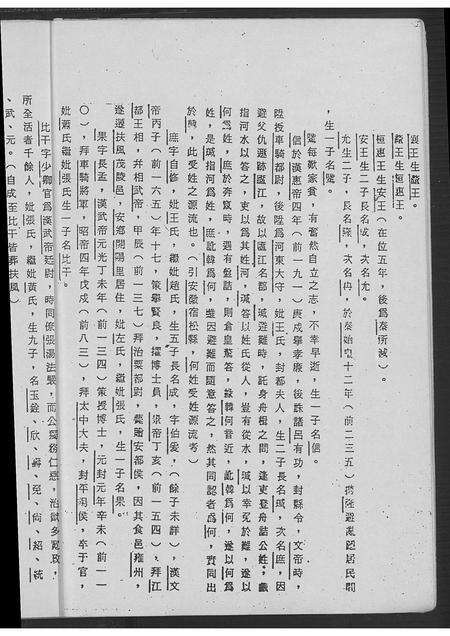 襄王生釐王。
釐王生恒惠王。
恒惠王生安王（在位五年，後爲秦所滅）。
安王生二子長名成，次名允。
允生二子，長名瑊，次名冉，於秦始皇十二年（前二三五）
，生一子名騭。
騭每歎家貧，有奮然自立之志，不幸早逝，生一子名信。
信於漢惠帝四年（前一九一）庚戌舉孝廉，後誅諸呂有功，封縣令，文帝時，
陞授車騎都尉，後陞爲河東大守，妣王氏，封都夫人，生二子長名瑊，次名庶，因
避父仇遁跡廬江，故以廬江名郡，瑊避難時，託身舟楫之間，逢吏登舟詰公姓，
指河水以答之，吏以爲其姓河，瑊答以姓氏從人，豈有從水，瑊以幸免於難，遂以
何爲姓，庶於奔竄時，遇有盤詰，則倉皇驚答，誤韓何音近，訛韓爲何，遂以何爲
姓，是瑊指河爲姓，庶訛韓爲何，雖因避難而隨意答之，然其同認者爲何，實同出
於韓，此受姓之源流也。（引安徽宿松縣，何姓受姓源流考）
庶字自修，妣王氏，繼妣趙氏，生五子長名成，字伯愛，（餘子未詳），漢文
帝丙子（前一六五）年十七，策舉賢良，擢博士員，景帝丁亥（前一五四），拜江
都王相，弁相武帝，甲辰（前一三七）拜治粟都尉，歷遊安都侯，因其食邑雍州，
遂遷扶風茂陵邑，安鄉開陽里居住，妣左氏，繼妣張氏，生一子名果。
果字長孟，漢武帝元光丁未年（前一三四）策授博士，元封元年辛未（前一一
〇），拜車騎將軍，昭帝四年戊戌（前八三），拜太中大夫，封平陽侯，卒于官，
妣蕭氏繼妣張氏生一子名比干。
比干字少卿官爲漢武帝廷尉，時同僚張湯法嚴，而公獨務仁恕，治獄多寬放，
所全活者千餘人，妣張氏，繼妣黃氏，生九子，名玉銓、欣、壽、兒、尙、紹、統
、武、元。（自成至比干皆葬扶風）